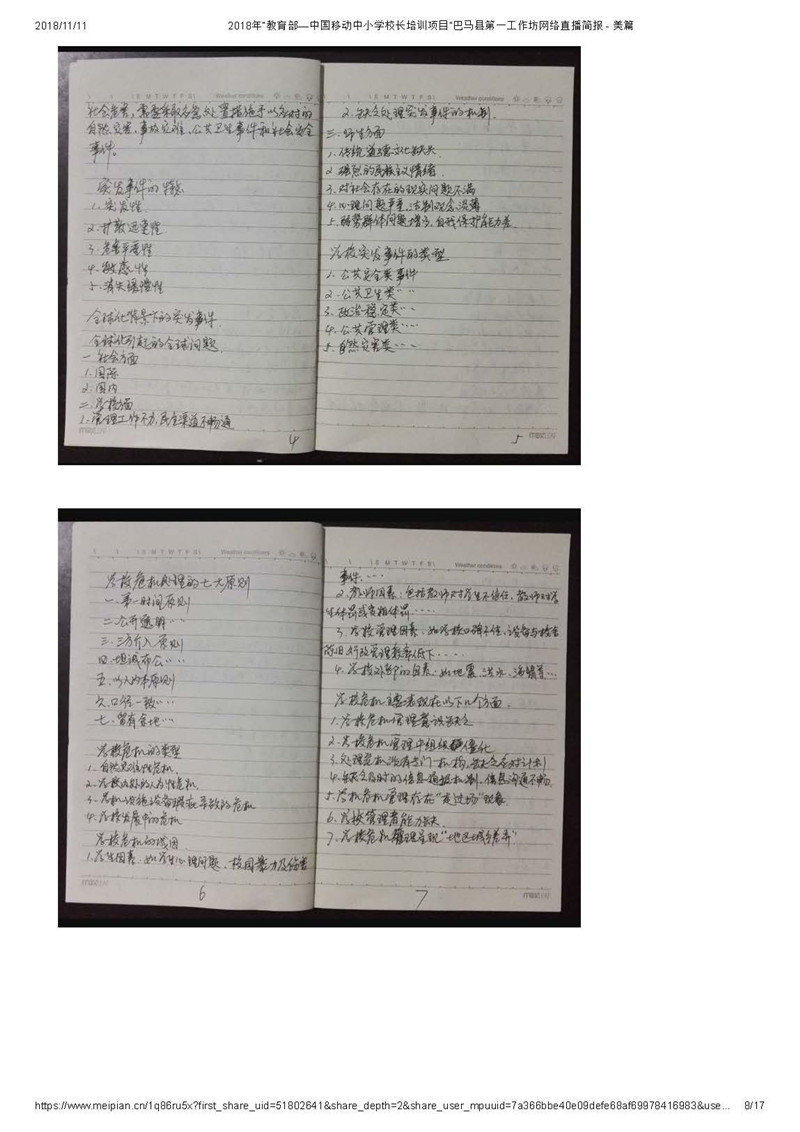 2018/11/11
2018年"教育部—中国移动中小学校长培训项目"巴马县第一工作坊网络直播简报 - 美篇
S M T W T F S
Weather conditions
社会危害,需要采取应急处置措施予以应对的
自然灾害、事故灾难、公共卫生事件和社会安全
事件。
突发事件的特点
1.突发性
2.扩散连带性
3.危害严重性
4.敏感性
5.消失缓慢性
全球化背景下的突发事件.
全球化引起的全球问题.
一 社会方面
1.国际
2.国内
二.学校方面
1.管理工作不力,民主渠道不畅通
4
S M T W T F S
Weather conditions
2.缺乏处理突发事件的机制.
三.师生方面
1.传统道德文化缺失
2.强烈的民族主义情绪.
3.对社会存在的现实问题不满
4.心理问题严重,法制观念淡薄
5.弱势群体问题增多,自我保护能力差.
学校突发事件的类型
1.公共安全类事件
2.公共卫生类…
3.政治稳定类…
4.公共管理类…
5.自然灾害类…
5
S M T W T F S
Weather conditions
学校危机处理的七大原则
一.第一时间原则
二.公开透明…
三.三方介入原则
四.坦诚布公…
五.以人为本原则
六.口径一致…
七.留有余地…
学校危机的类型
1.自然灾难性危机.
3.危机设施设备瑕疵导致的危机
4.学校发展中的危机
学校危机的成因
1.学生因素,如学生心理问题、校园暴力及伤害
6
S M T W T F S
Weather conditions
事件.…
2.教师因素:包括教师对学生不信任,教师对学
生体罚或变相体罚…
3.学校管理因素:
陈旧,行政管理效率低下…
4.学校外部的因素:如地震、洪水、
学校危机主要表现在以下几个方面.
1.学校危机管理意识缺乏
2.学校危机管理中组织僵化
3.处理危机没有专门机构,缺乏应对计划
4.缺乏及时的信息通报机制,信息沟通不畅
5.学校危机管理存在"走过场"现象
6.学校管理者能力缺失
7.学校危机管理呈现"地区城乡差异"
7
https://www.meipian.cn/1q86ru5x?first_share_uid=51802641&share_depth=2&share_user_mpuuid=7a366bbe40e09defe68af69978416983&use...
8/17